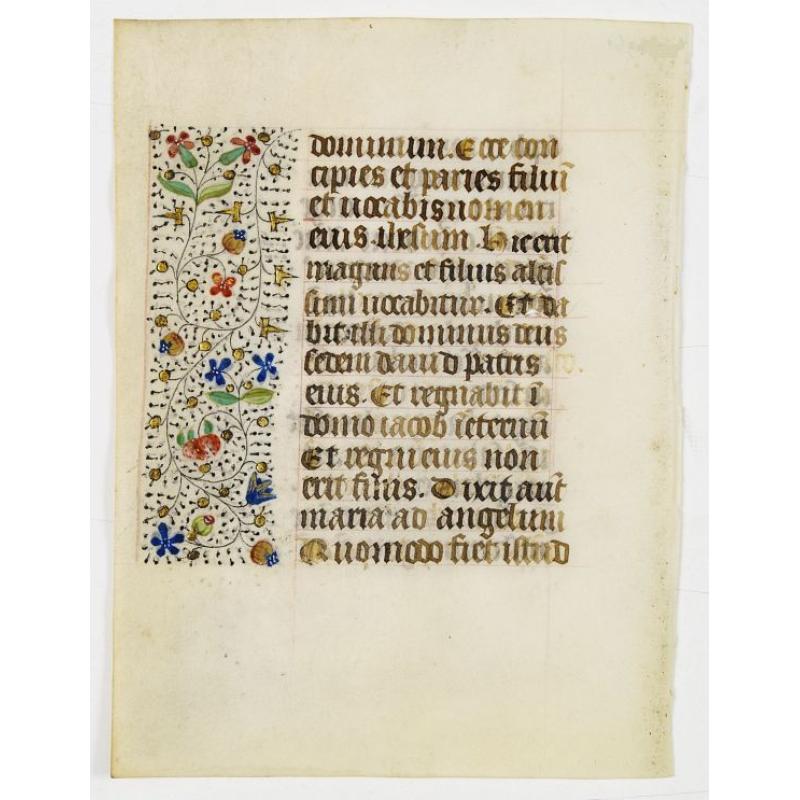 dominum. Ecce con
cipies et paries filiū
et vocabis nomen
eius Ihesum. Hic erit
magnus et filius altis
simi vocabitur. Et da
bit illi dominus deus
sedem dauid patris
eius. Et regnabit ī
domo iacob īeternū
Et regni eius non
erit finis. Dixit aūt
maria ad angelum
Quomodo fiet istud